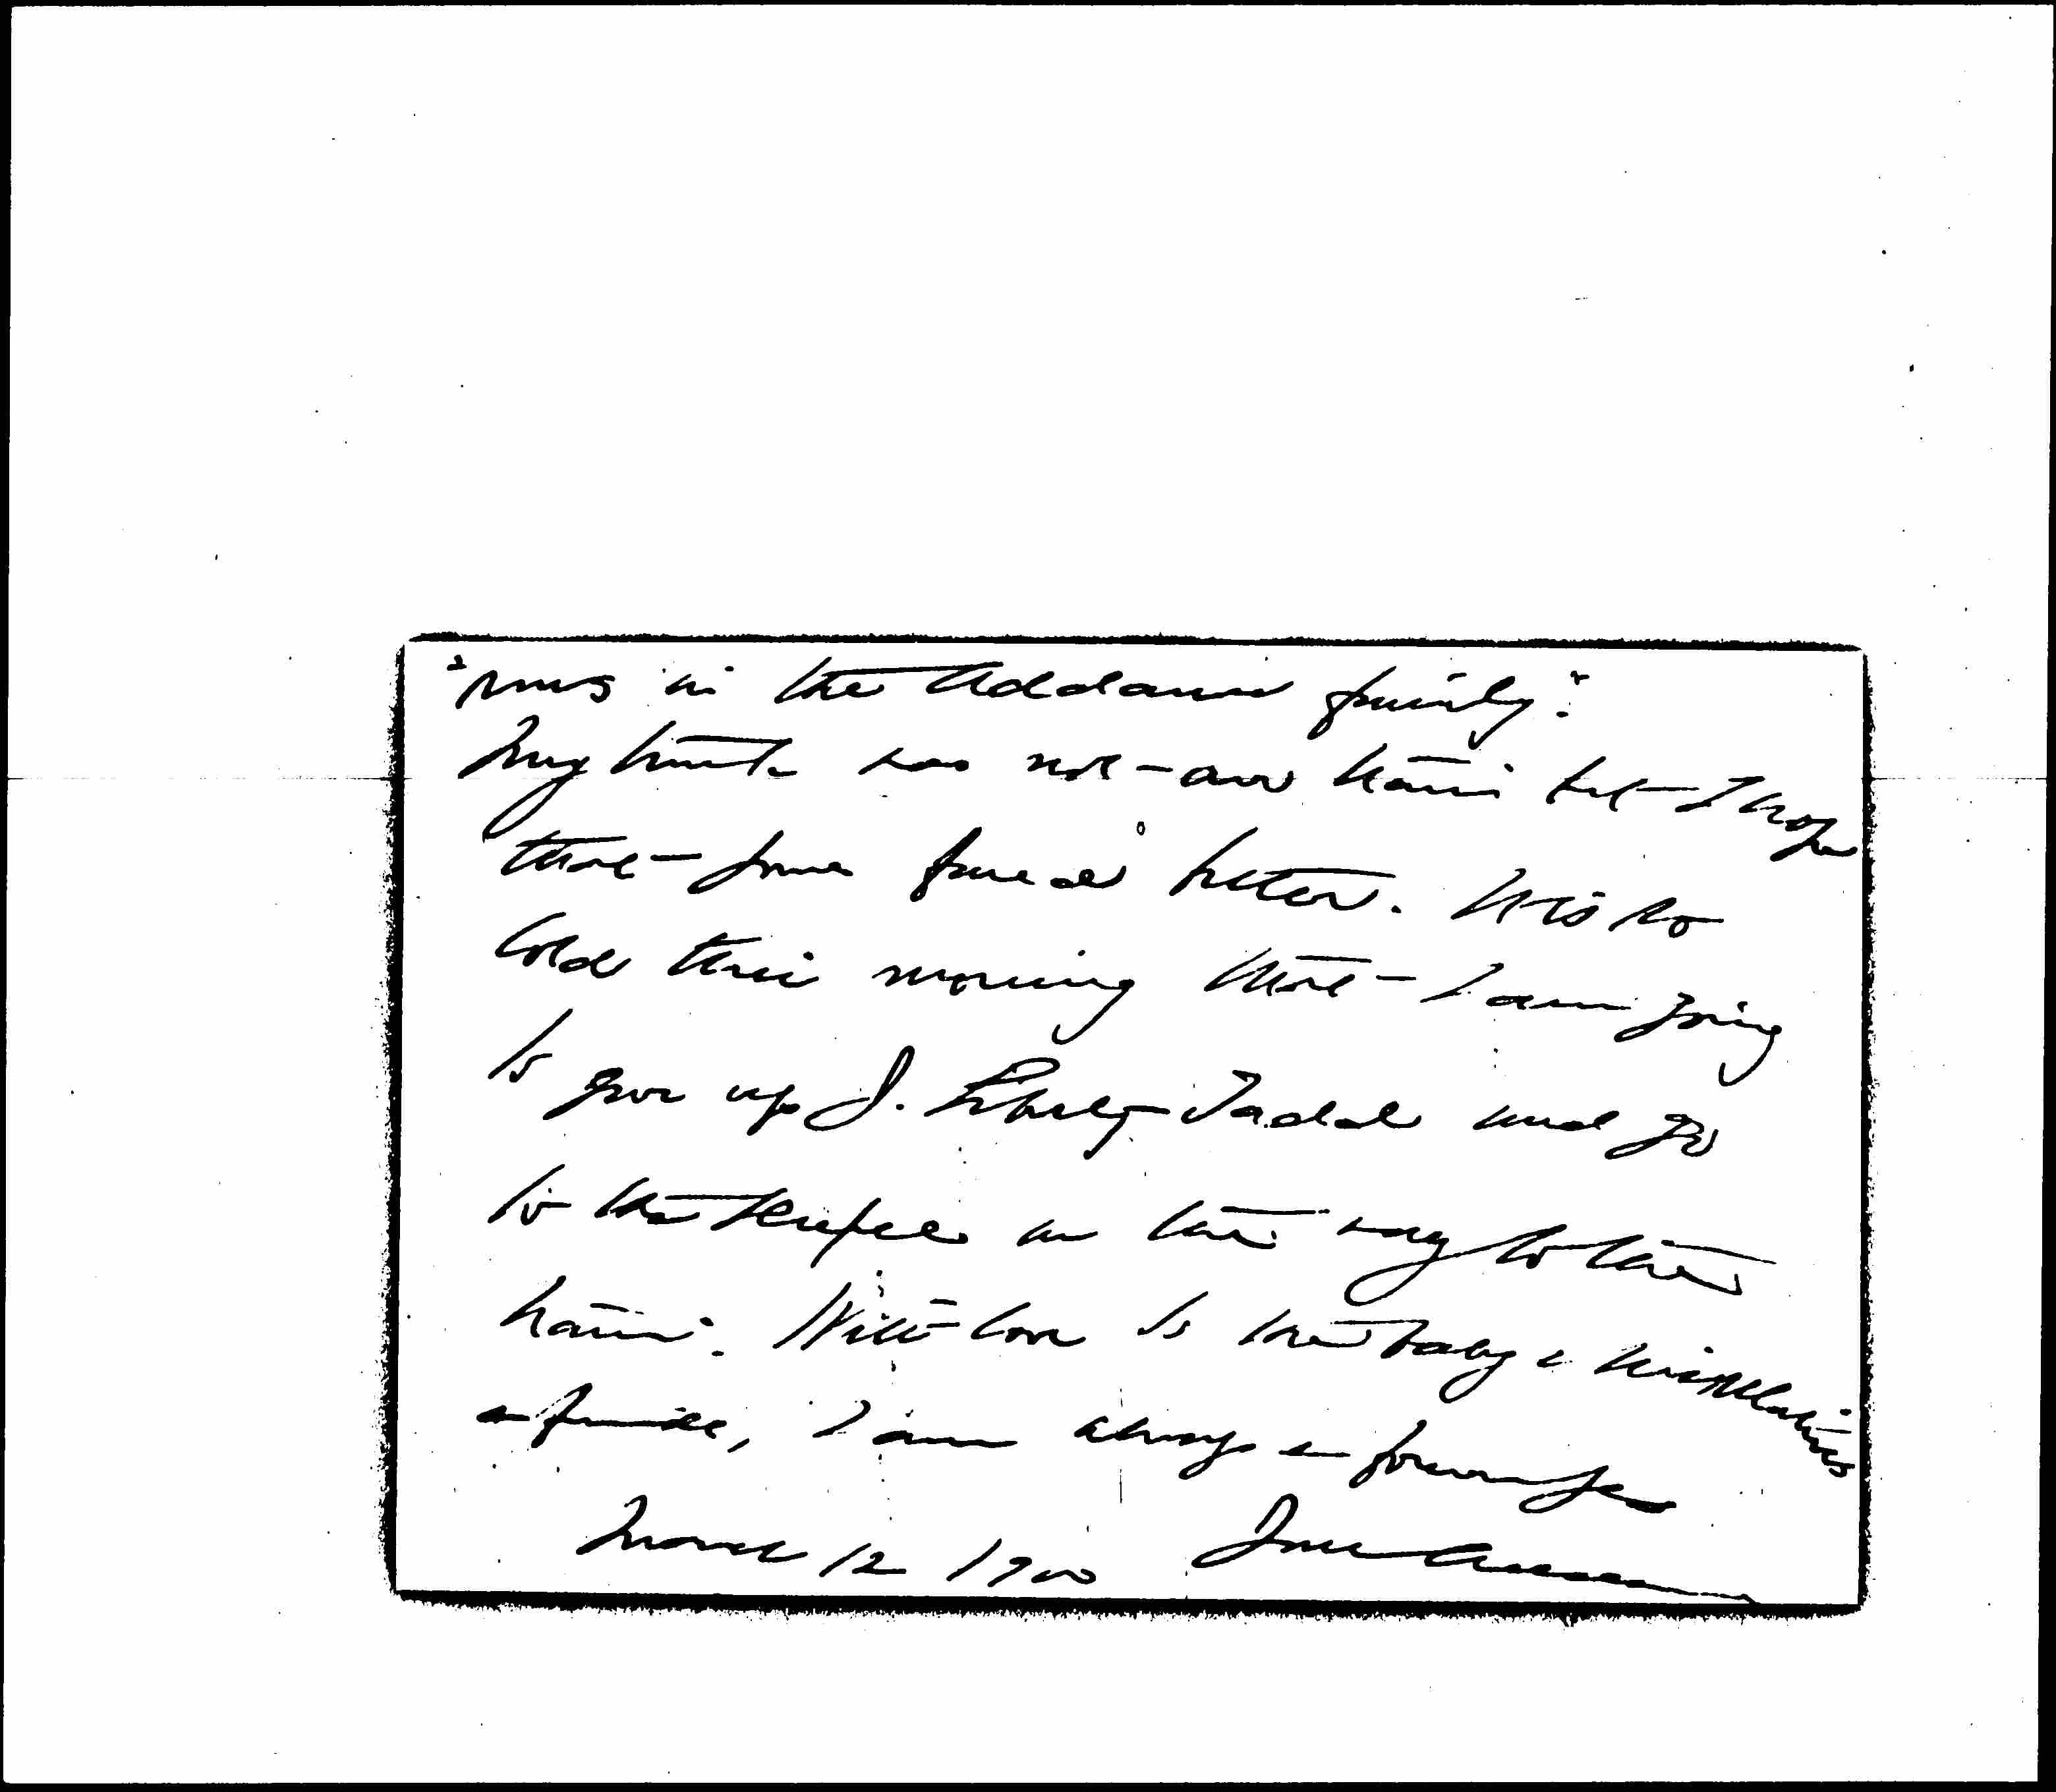 "runs in the Addams family".
My trunk was not on train but I hope
that yours fared better. It is so
cold this morning that I am going
to give up J. Liberty Tadd and go
to the on the way to the
train. With love to the baby &
& family, I am always yours
March 12 1900 Jane Addams